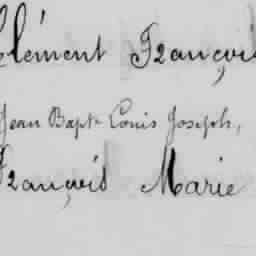 Clément François
Jean Bapt. Louis Joseph,
François Marie